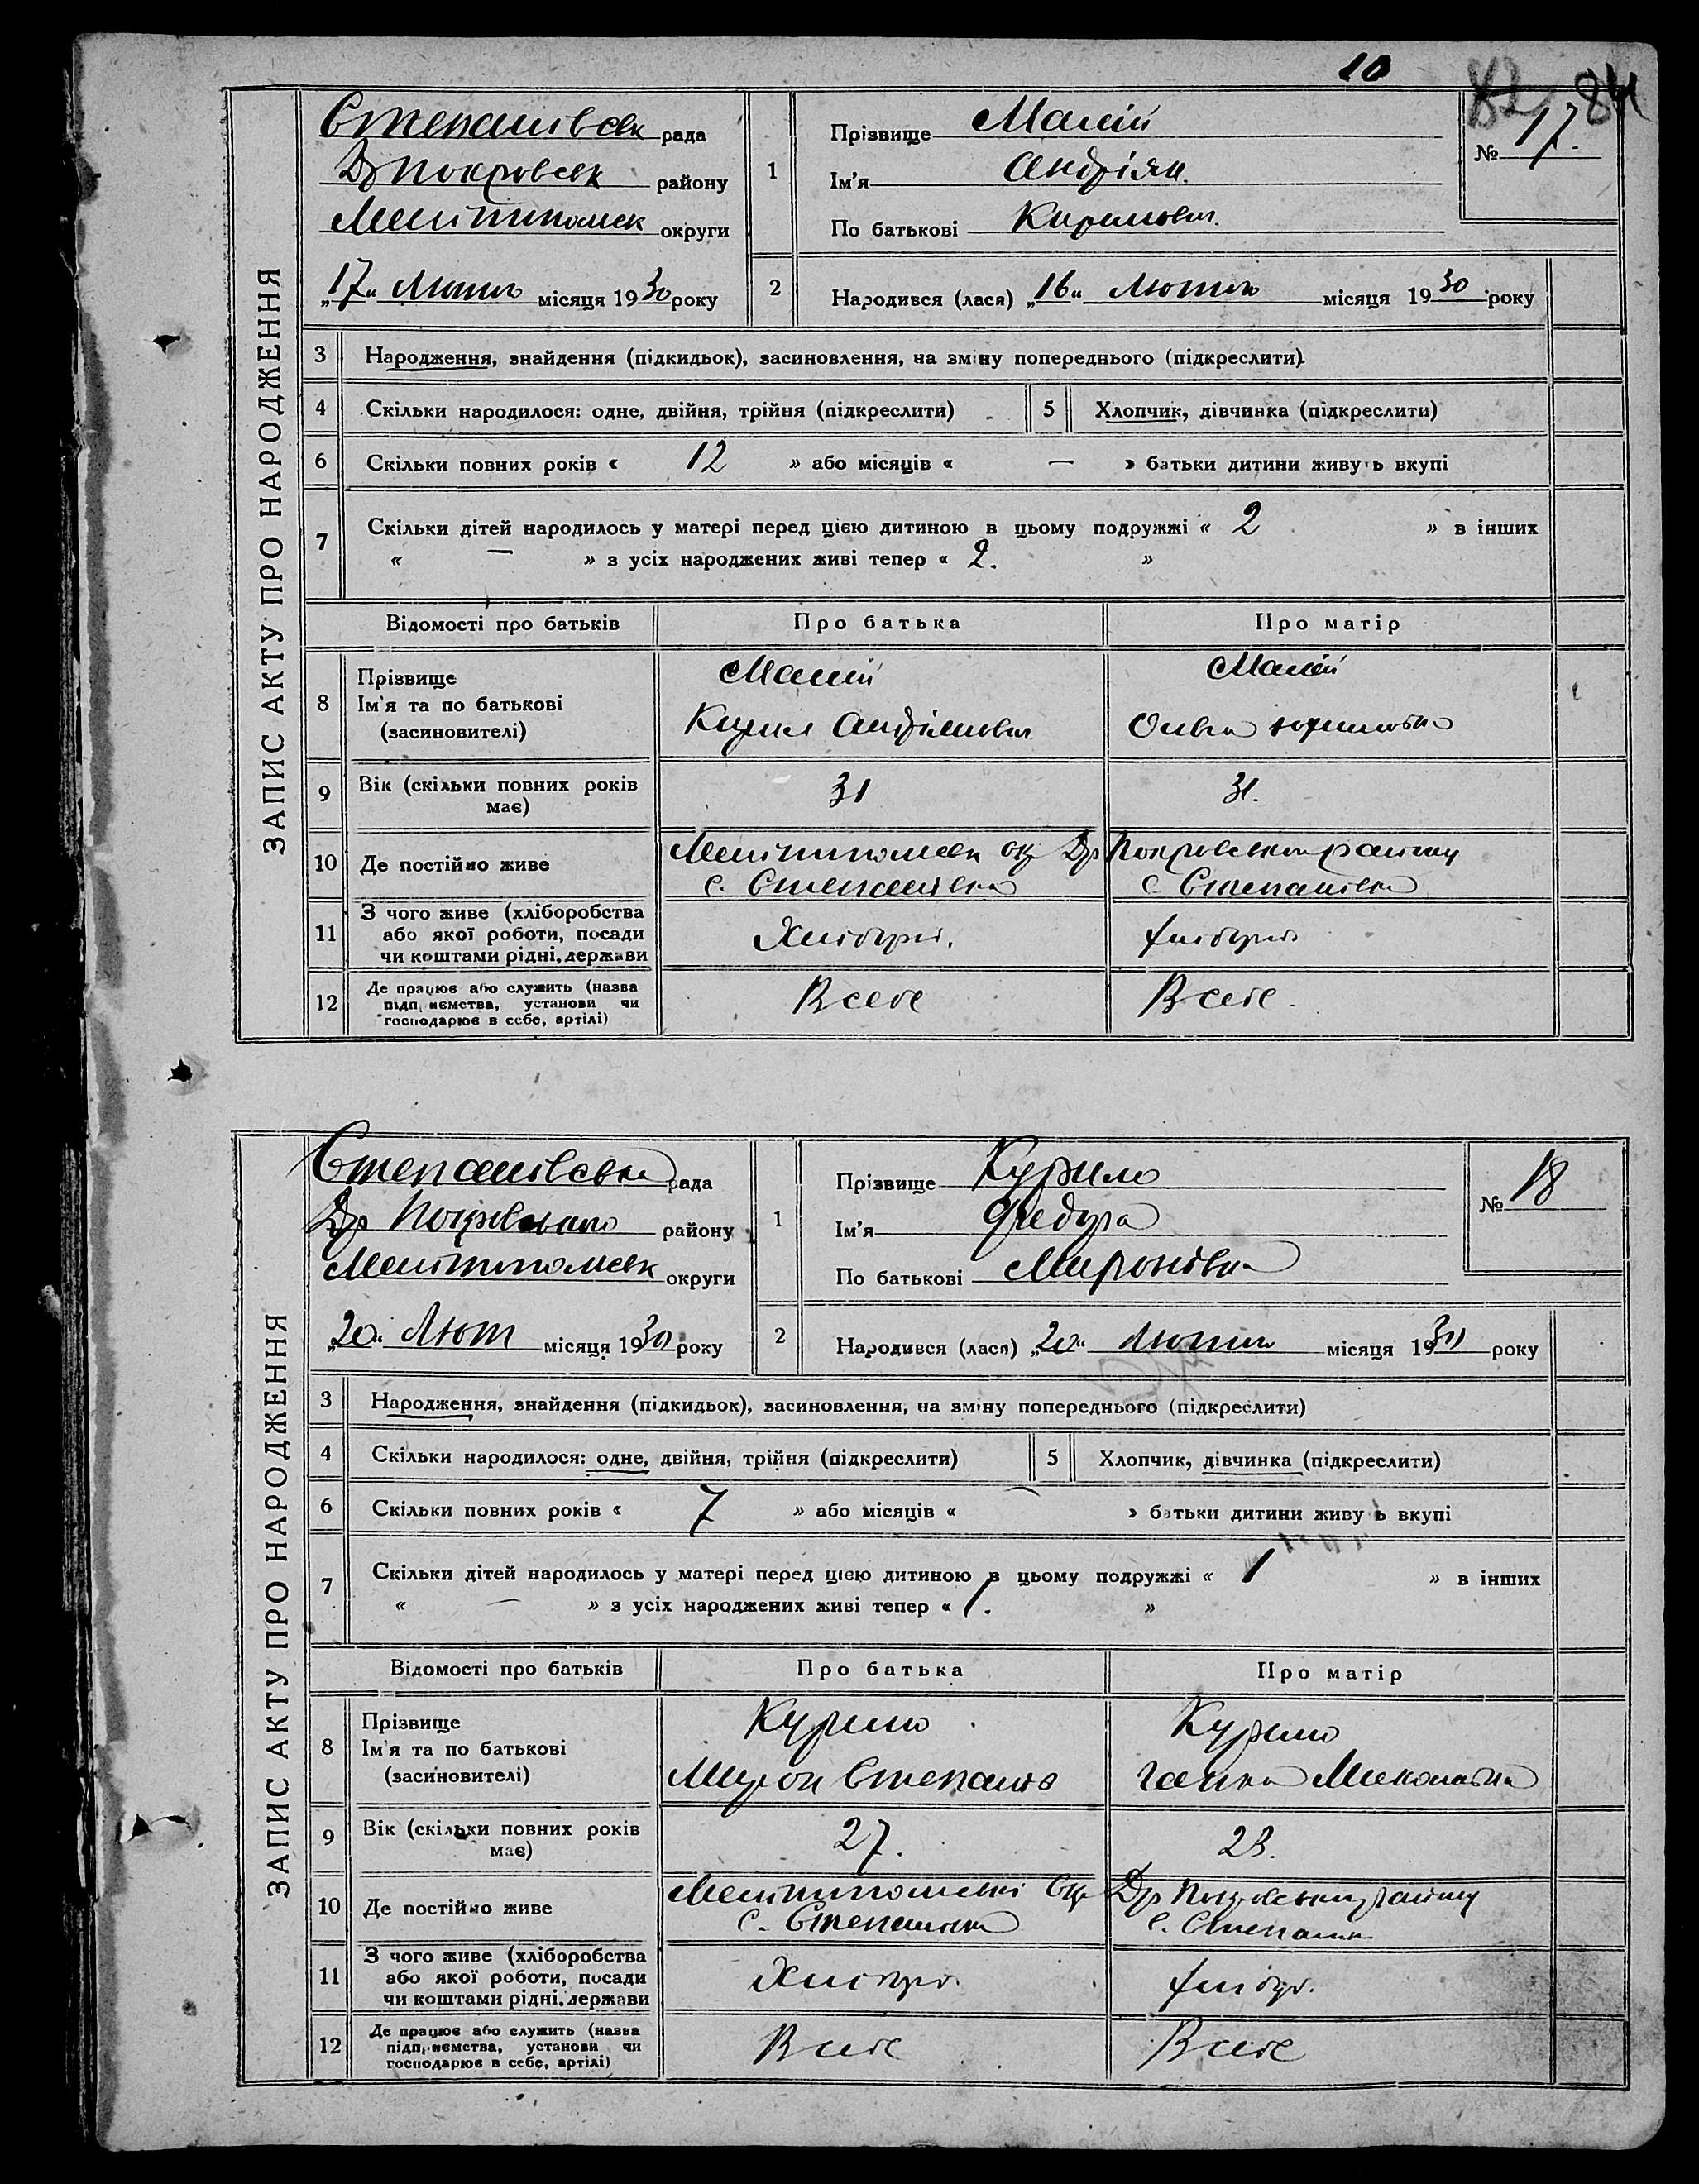 10
82 84
ЗАПИС АКТУ ПРО НАРОДЖЕННЯ
Степанівськ рада
Др Покровськ району
Мелітопольськ округи
„17“ Лютого місяця 1930 року
1
Прізвище Малій
Ім'я Андріян.
По батькові Кирилович.
№ 17.
2
Народився (лася) „16“ Лютого місяця 1930 року
3 Народження, знайдення (підкидьок), засиновлення, на зміну попереднього (підкреслити)
4 Скільки народилося: одне, двійня, трійня (підкреслити)
5 Хлопчик, дівчинка (підкреслити)
6 Скільки повних років « 12 » або місяців « — » батьки дитини живуть вкупі
7 Скільки дітей народилось у матері перед цією дитиною в цьому подружжі « 2 » в інших
« — » з усіх народжених живі тепер « 2. »
Відомості про батьків Про батька Про матір
8 Прізвище Малій Малій
Ім'я та по батькові Кирил Андріянович
(засиновителі)
9 Вік (скільки повних років має) 31 31.
10 Де постійно живе Мелітопольськ окр Др Покровського району
с. Степанівка с. Степанівка
11 З чого живе (хліборобства
або якої роботи, посади Хлібороб. хлібороб.
чи коштами рідні, держави
12 Де працює або служить (назва
підприємства, установи чи В себе В себе.
господарює в себе, артілі)
ЗАПИС АКТУ ПРО НАРОДЖЕННЯ
Степанівська рада
Др Покровського району
Мелітопольськ округи
„20“ Лют місяця 1930 року
1
Прізвище Курило
Ім'я Федора
По батькові Миронівна
№ 18
2
Народився (лася) „20“ Лютого місяця 1930 року
3 Народження, знайдення (підкидьок), засиновлення, на зміну попереднього (підкреслити)
4 Скільки народилося: одне, двійня, трійня (підкреслити)
5 Хлопчик, дівчинка (підкреслити)
6 Скільки повних років « 7 » або місяців « — » батьки дитини живуть вкупі
7 Скільки дітей народилось у матері перед цією дитиною в цьому подружжі « 1 » в інших
« — » з усіх народжених живі тепер « 1. »
Відомості про батьків Про батька Про матір
8 Прізвище Курило Курило
Ім'я та по батькові Мирон Степанов Ганна Миколаївна
(засиновителі)
9 Вік (скільки повних років має) 27. 23.
10 Де постійно живе Мелітопольські Окр Др Покровського району
с. Степанівка с. Степанівк
11 З чого живе (хліборобства
або якої роботи, посади Хлібороб. хлібор.
чи коштами рідні, держави
12 Де працює або служить (назва
підприємства, установи чи В себе В себе
господарює в себе, артілі)